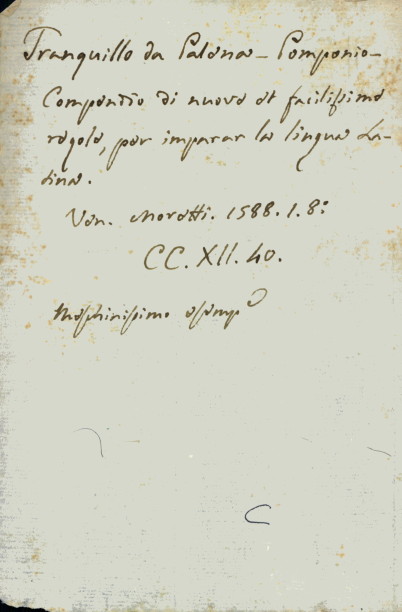 Tranquillo da Palena - Pomponio -
Compendio di nuove et facilissime
regole, per imparar la lingua La-
tina.
Ven. Moretti. 1588. 1. 8:
CC. XII. 40.
Meschinissimo esemp